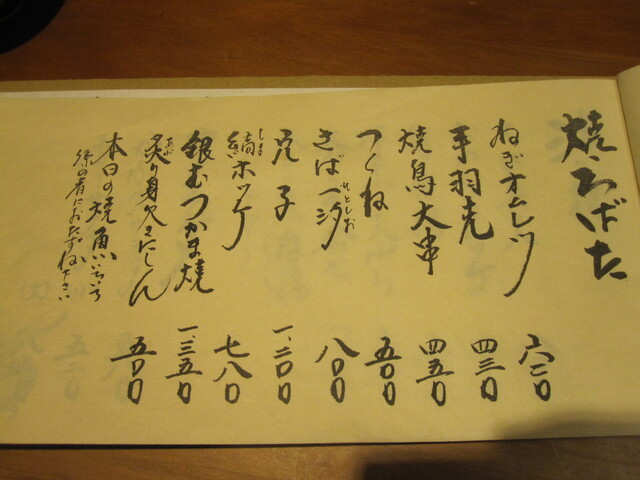 焼ろばた
ねぎオムレツ 六二〇
手羽先 四三〇
焼鳥大串 四五〇
つくね 五〇〇
さば一汐 八〇〇
ひとしお
穴子 一、二〇〇
縞ホッケ 七八〇
しま
銀むつかま焼 一、三五〇
炙り身欠きにしん 五〇〇
あぶ
本日の焼魚いろいろ
係の者におたずね下さい